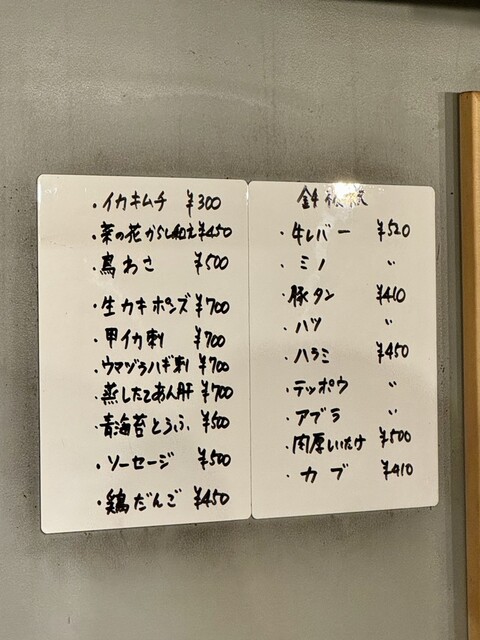 ・イカキムチ ¥300
・菜の花からし和え ¥450
・鳥わさ ¥500
・生カキポンズ ¥700
・甲イカ刺 ¥700
・ウマヅラハギ刺 ¥700
・蒸したてあん肝 ¥700
・青海苔とうふ ¥500
・ソーセージ ¥500
・鶏だんご ¥450
・牛レバー ¥520
・ミノ 〃
・豚タン ¥410
・ハツ 〃
・ハラミ ¥450
・テッポウ 〃
・アブラ 〃
・肉厚しいたけ ¥500
・カブ ¥410